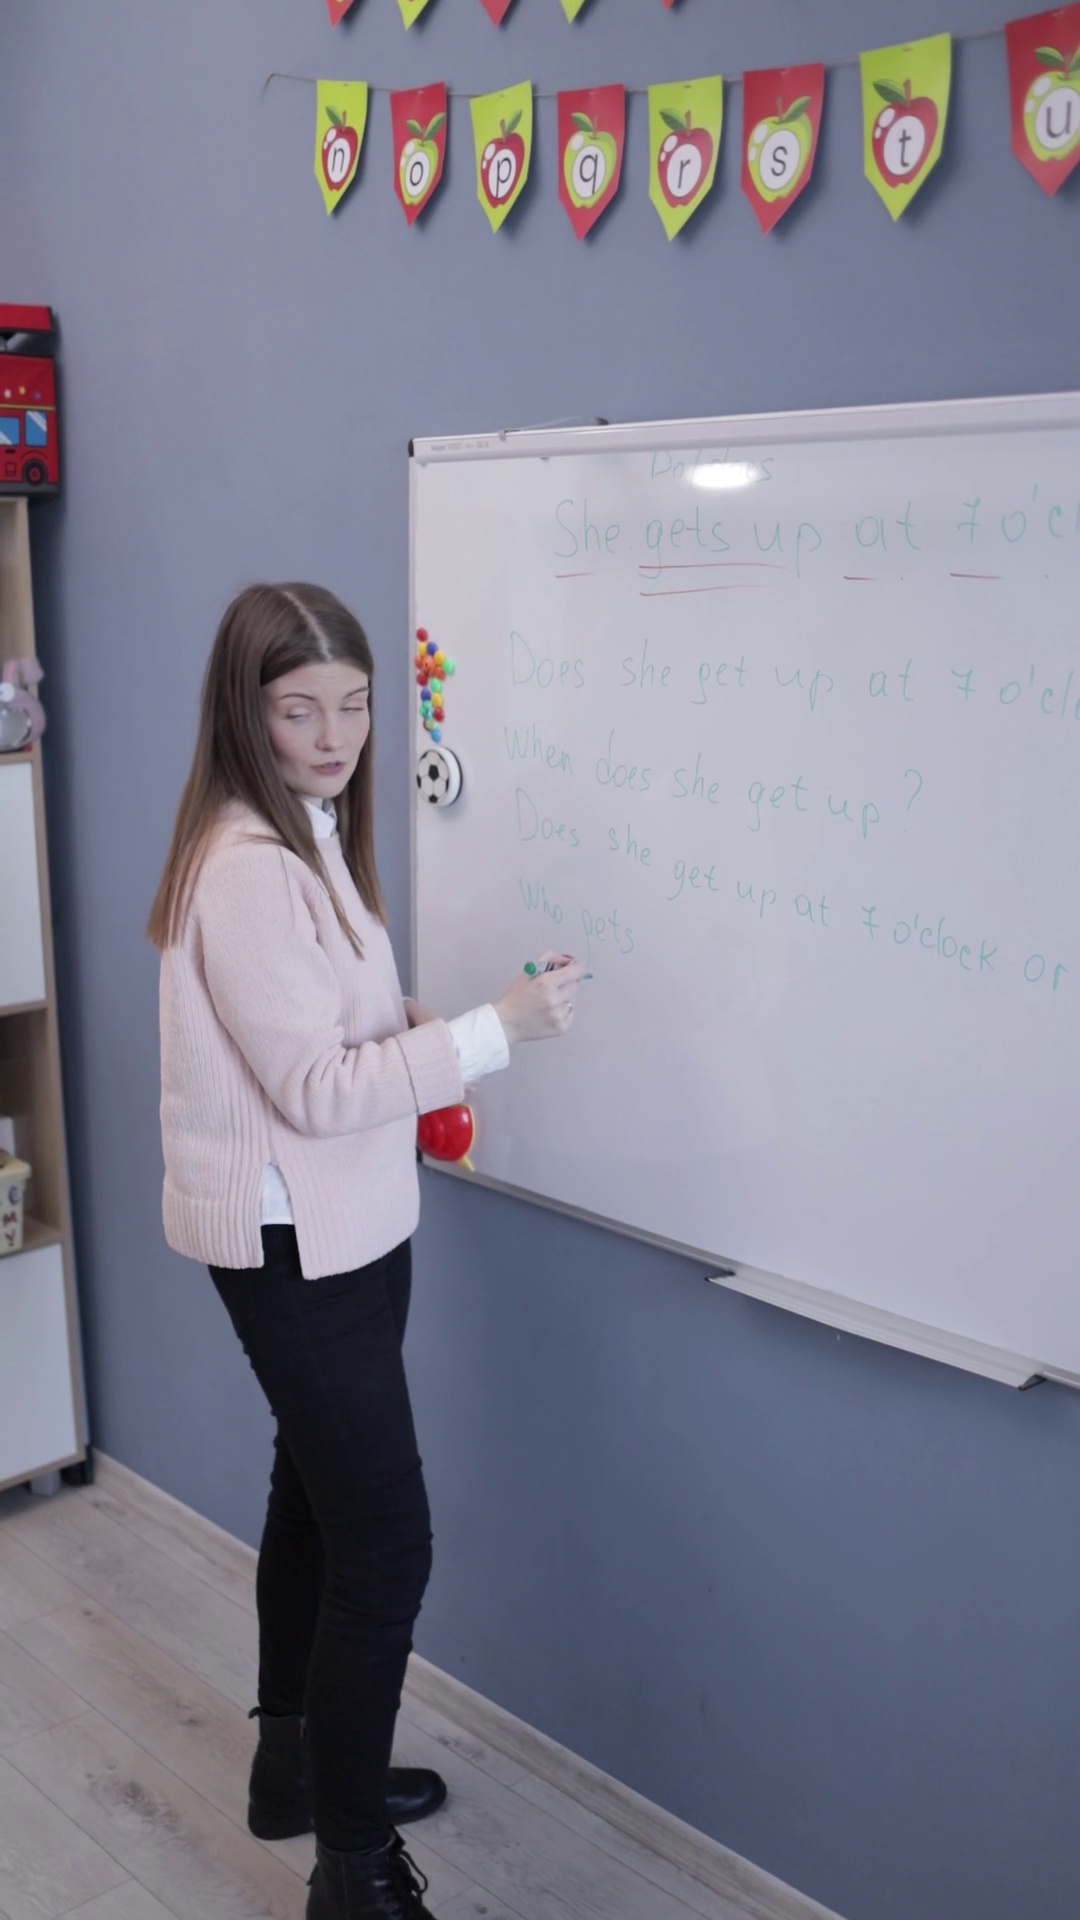 n o p q r s t u
Do/does
She gets up at 7 o'cl
Does she get up at 7 o'clo
When does she get up?
Does she get up at 7 o'clock or
Who gets
C
M Y